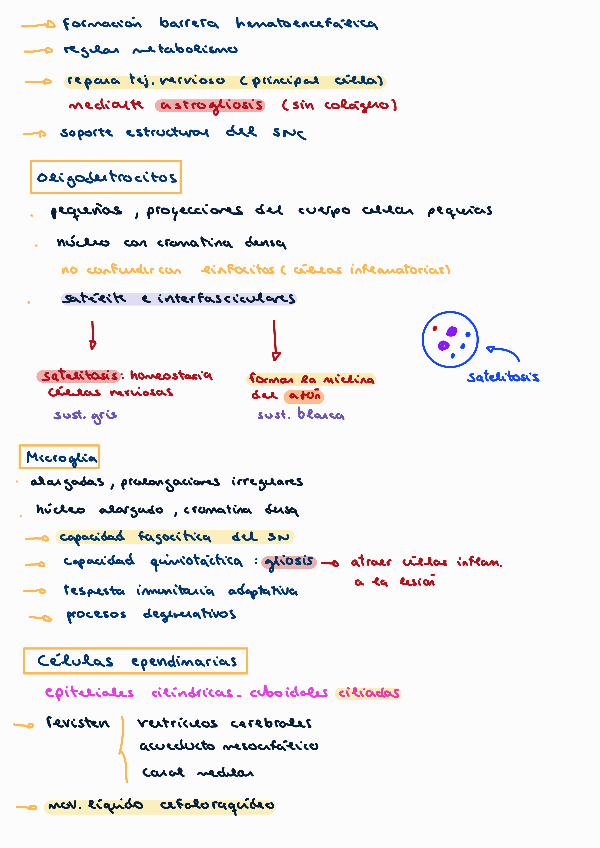 → formación barrera hematoencefálica
→ regular metabolismo
→ repara tej. nervioso (principal célula)
mediante astrogliosis (sin colágeno)
→ soporte estructural del SNC
Oligodentrocitos
· pequeñas, proyecciones del cuerpo celular pequeñas
· núcleo con cromatina densa
no confundir con linfocitos (células inflamatorias)
· satélite e interfasciculares
satelitosis: homeostasia
células nerviosas
sust. gris
forman la mielina
del axón
sust. blanca
satelitosis
Microglia
· alargadas, prolongaciones irregulares
· núcleo alargado, cromatina densa
→ capacidad fagocítica del SN
→ capacidad quimiotáctica: gliosis → atraer células inflam.
a la lesión
→ respuesta inmunitaria adaptativa
→ procesos degenerativos
Células ependimarias
epiteliales cilíndricas-cuboidales ciliadas
→ revisten
ventrículos cerebrales
acueducto mesencefálico
canal medular
→ mov. líquido cefaloraquídeo